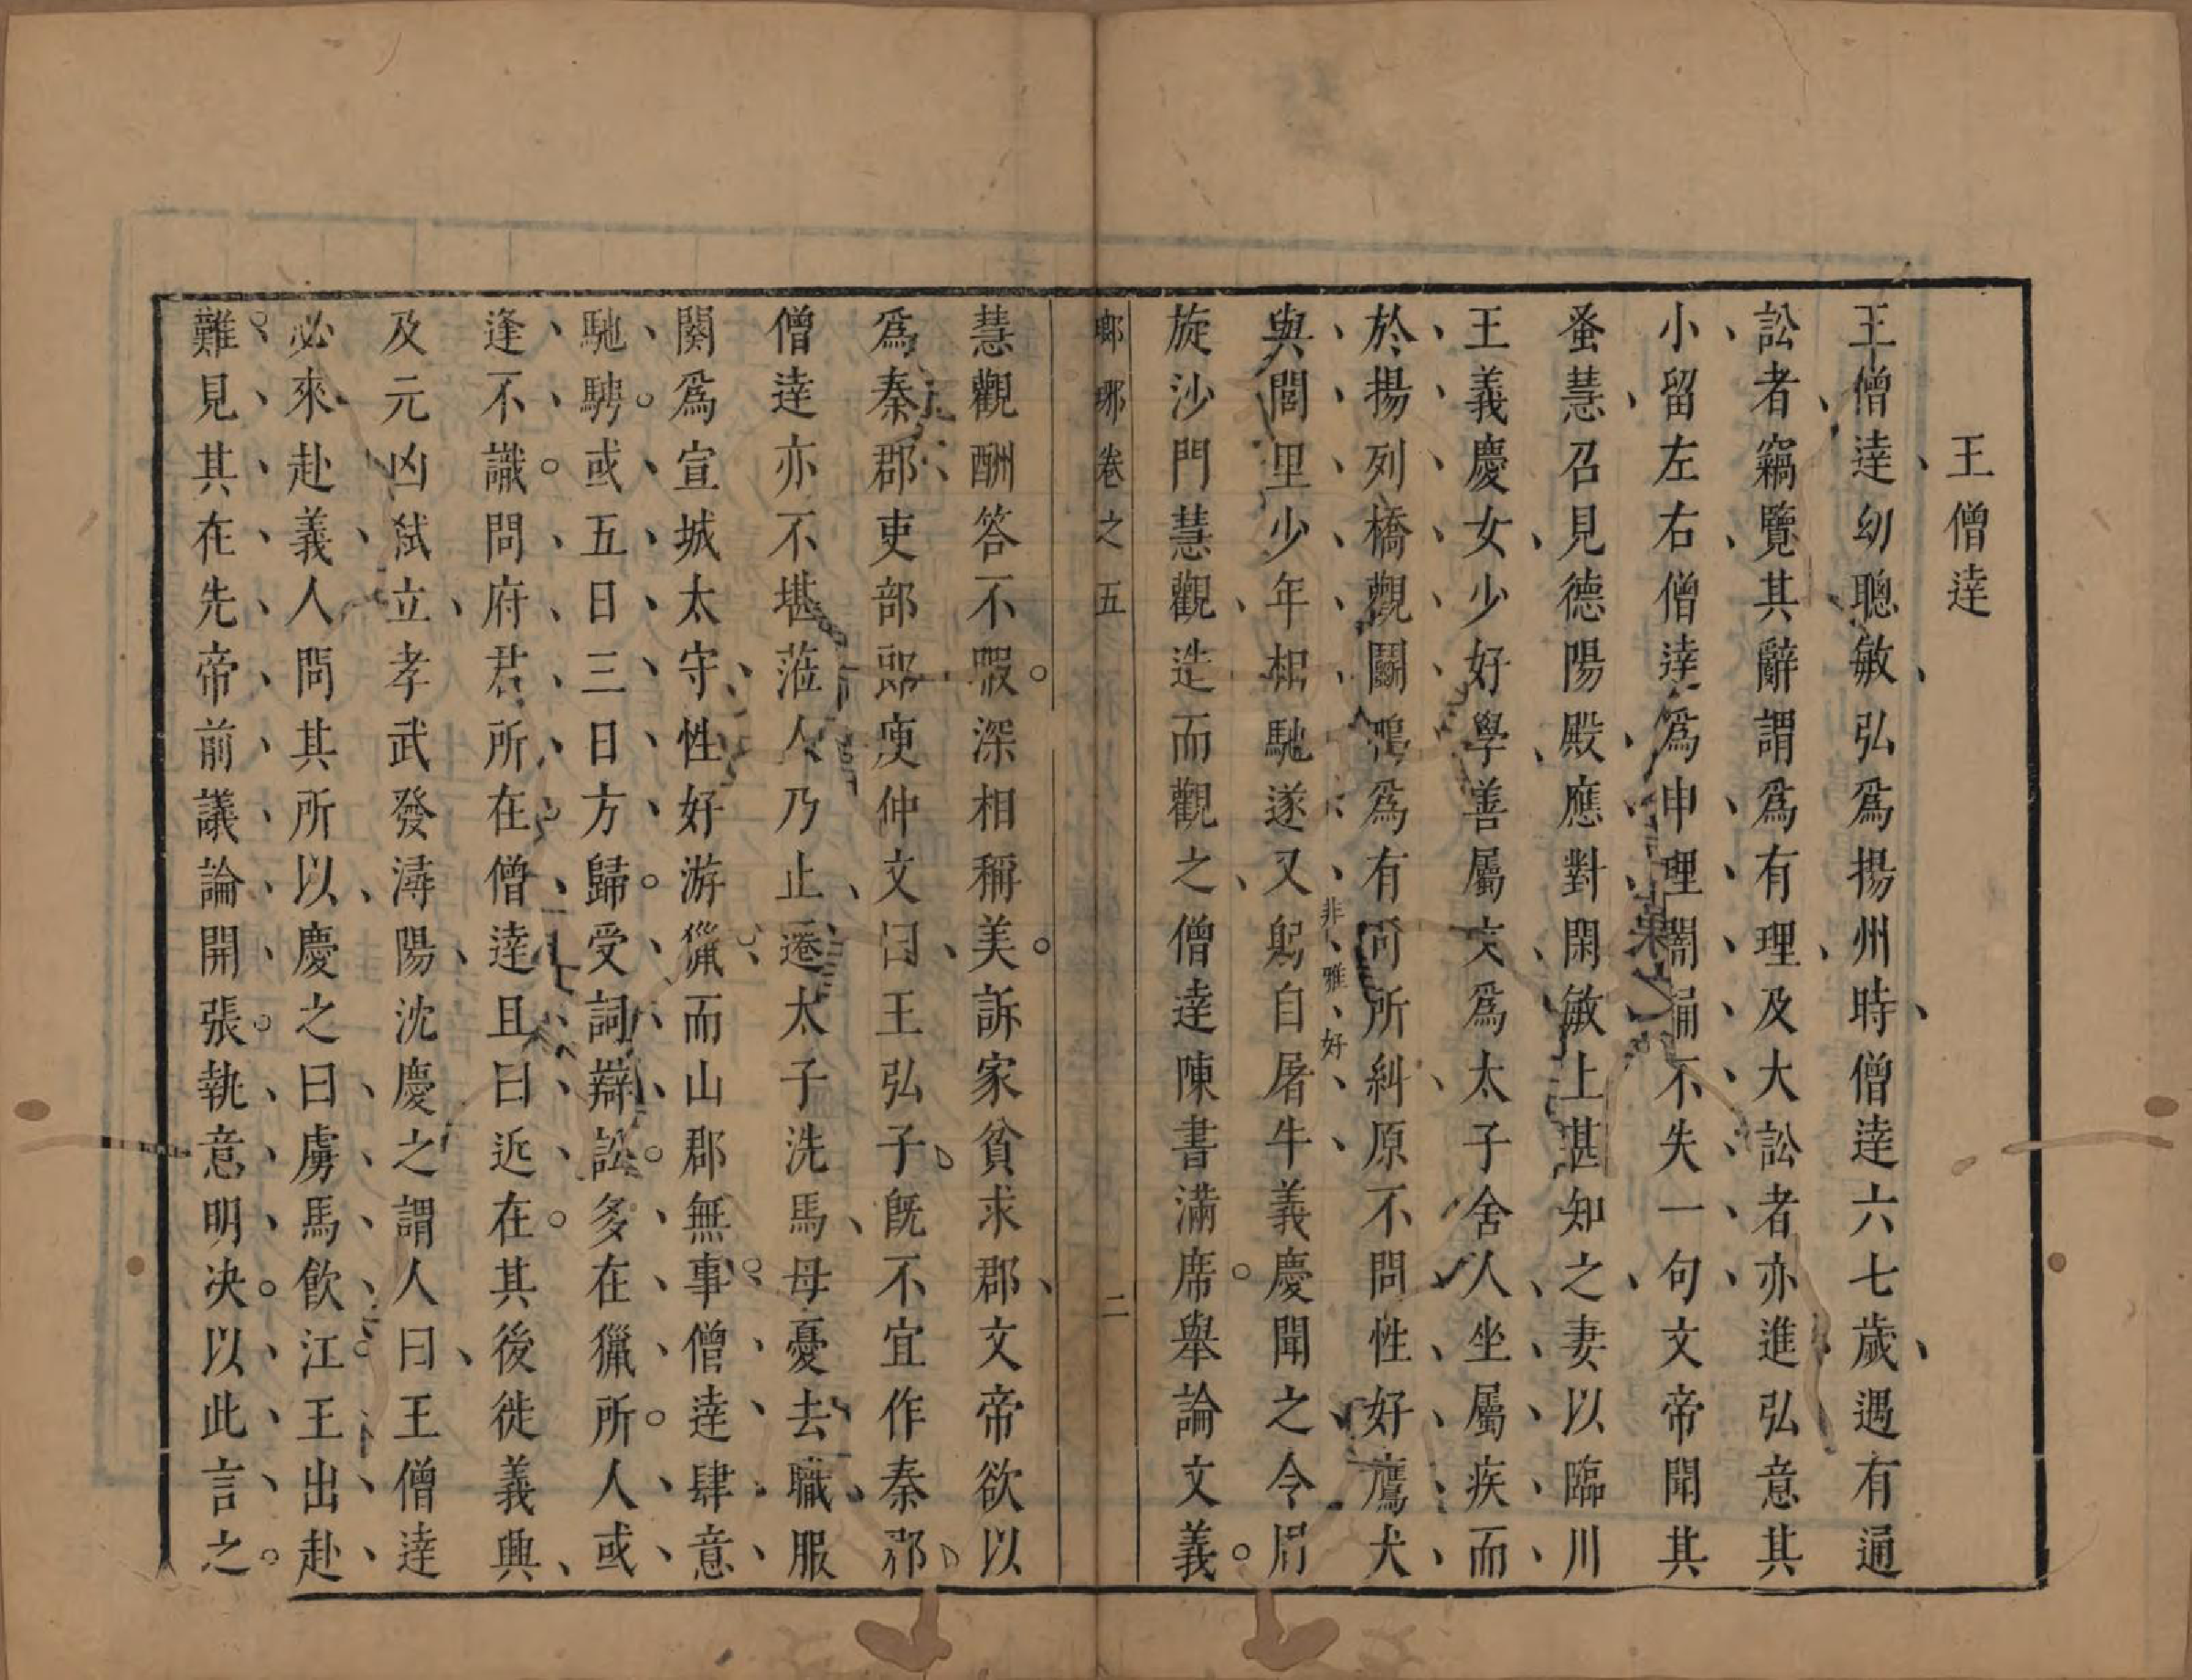 王僧達
王僧達幼聰敏弘爲揚州時僧達六七歲遇有通
訟者竊覽其辭謂爲有理及大訟者亦進弘意其
小留左右僧達爲申理闇誦不失一句文帝聞其
蚤慧召見德陽殿應對閑敏上甚知之妻以臨川
王義慶女少好學善屬文爲太子舍人坐屬疾而
於揚列橋觀鬬鴨爲有司所糾原不問性好鷹犬
與閭里少年相馳遂又躬自屠牛義慶聞之令周
非雅好
旋沙門慧觀造而觀之僧達陳書滿席舉論文義
瑯琊卷之五 二
慧觀酬答不暇深相稱美訴家貧求郡文帝欲以
爲秦郡吏部郎庾仲文曰王弘子旣不宜作秦郡
僧達亦不堪蒞人乃止遷太子洗馬母憂去職服
闋爲宣城太守性好游獵而山郡無事僧達肆意
馳騁或五日三日方歸受詞辯訟多在獵所人或
逢不識問府君所在僧達且曰近在其後徙義興
及元凶弑立孝武發潯陽沈慶之謂人曰王僧達
必來赴義人問其所以慶之曰虜馬飲江王出赴
難見其在先帝前議論開張執意明决以此言之